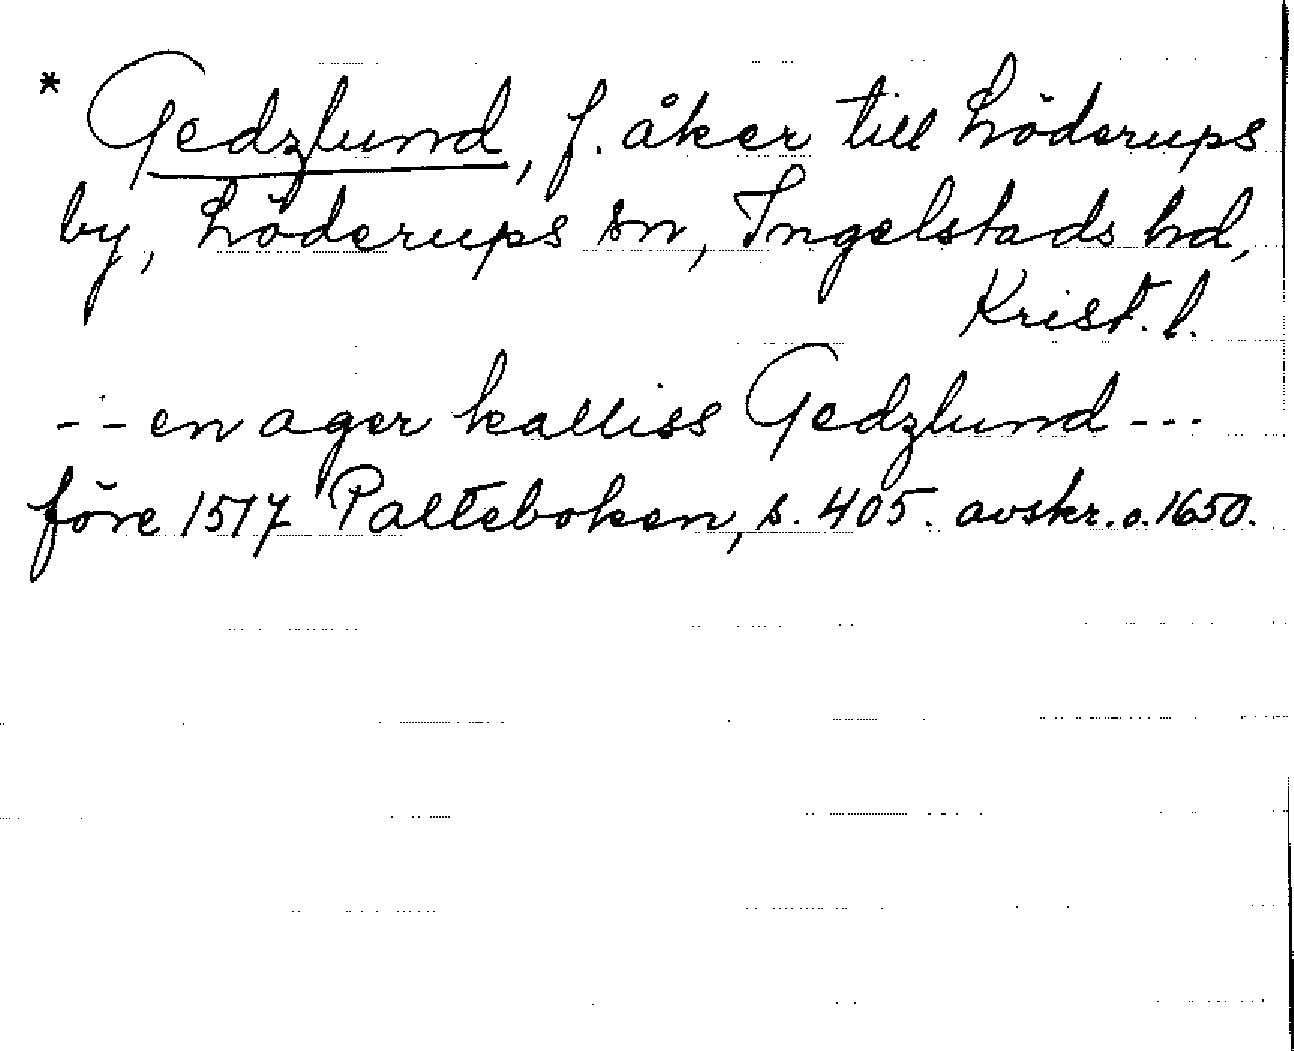 * Gedzlund, f. åker till Löderups
by, Löderups sn, Ingelstads hd,
Krist. l.
- - en ager kalliss Gedzlund - - -
före 1517 Palteboken, s. 405. avskr. o. 1650.